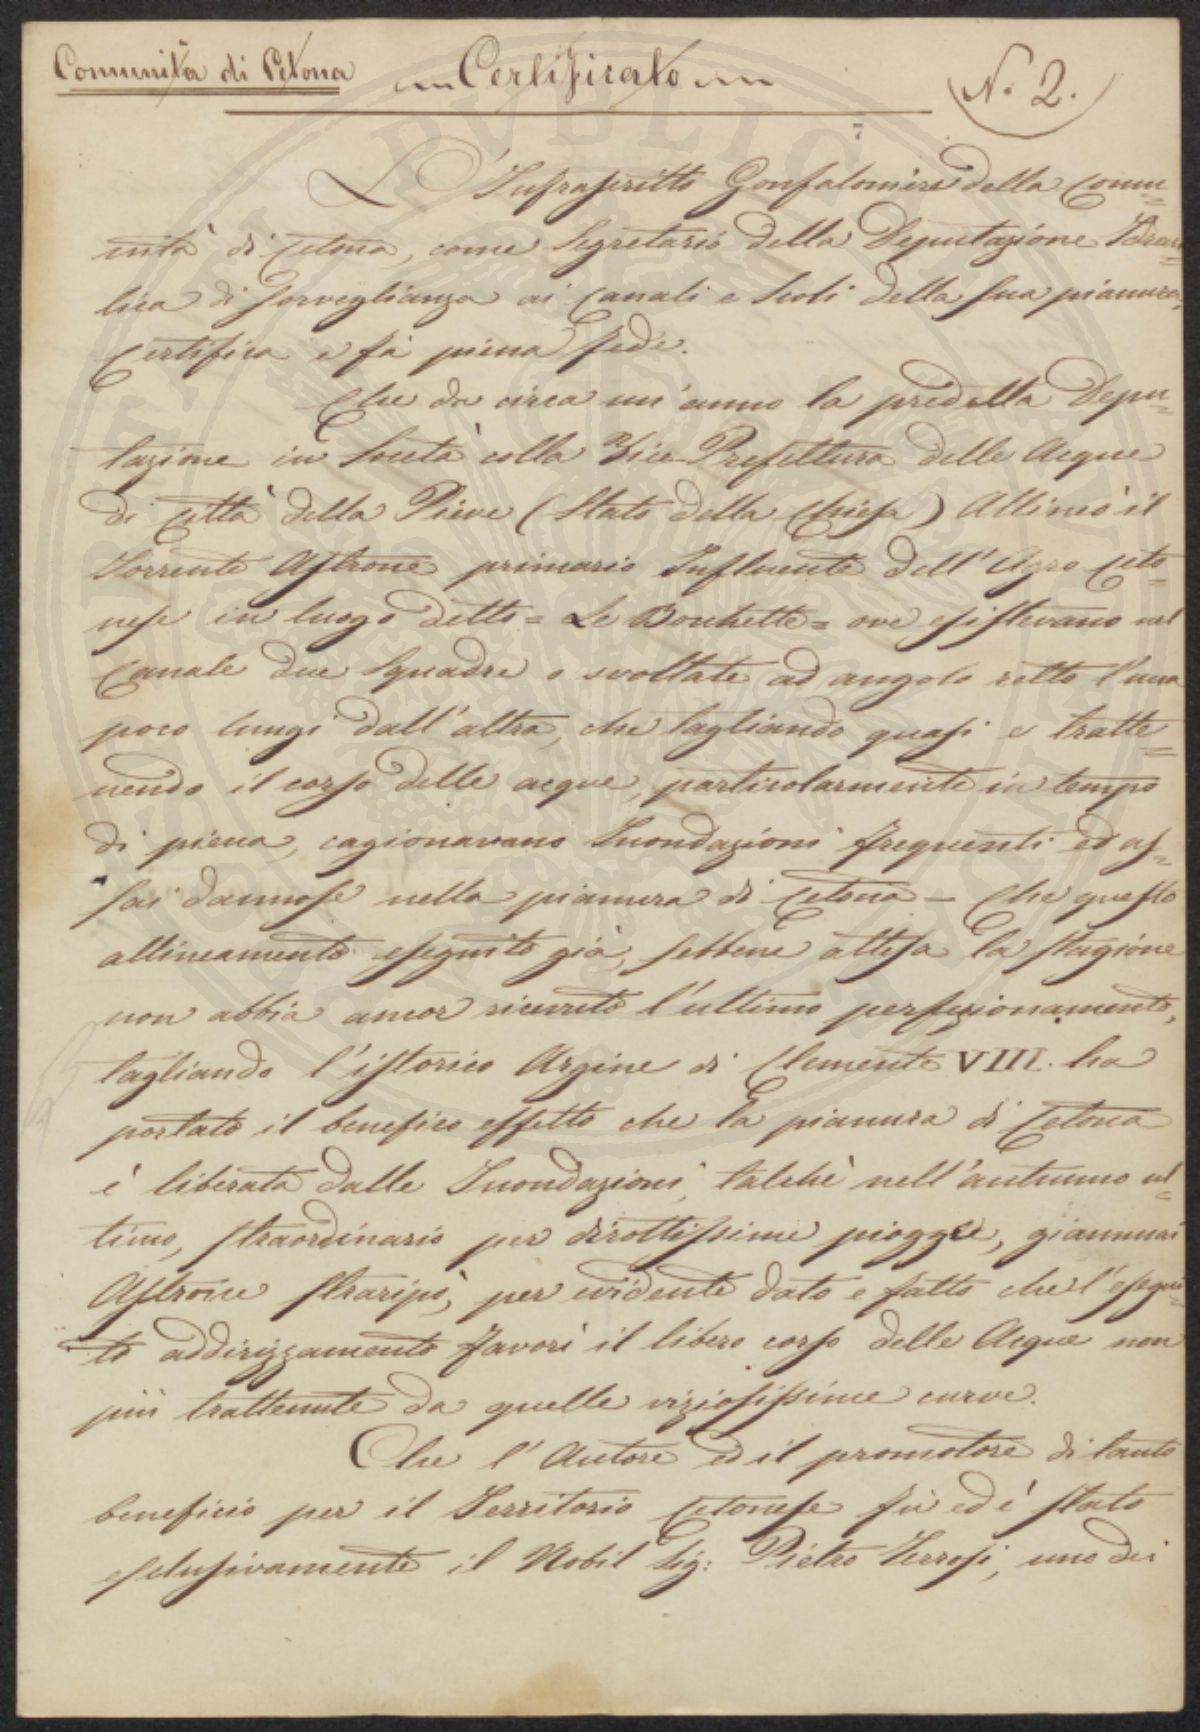 Comunità di Cetona
Certificato
N. 2.
7
L'Infrascritto Gonfaloniere della Comu=
nità di Cetona, come Segretario della Deputazione Idrau=
lica di Sorveglianza ai Canali e Scoli della sua pianura,
Certifica e fà piena fede.
Che da circa un'anno la predetta Depu=
tazione in Società colla Vice-Prefettura delle Acque
di Città della Pieve (Stato della Chiesa) Allineò il
Torrente Astrone primario Influente dell'Agro Ceto=
nese in luogo detto = Le Bonchette = ove esistevano nel
Canale due Squadre o svoltate ad angolo retto l'una
poco lungi dall'altra, che tagliando quasi e tratte=
nendo il corso delle acque, particolarmente in tempo
di piena, cagionavano Inondazioni frequenti ed as=
sai dannose nella pianura di Cetona — Che questo
allineamento eseguito già, sebbene attesa la stagione
non abbia ancor ricevuto l'ultimo perfezionamento,
tagliando l'istorico Argine di Clemente VIII. ha
portato il benefico effetto che la pianura di Cetona
è liberata dalle Inondazioni, talchè nell'autunno ul=
timo, straordinario per dirottissime piogge, giammai
Astrone straripò, per evidente dato e fatto che l'esegui=
to addirizzamento favorì il libero corso delle Acque non
più trattenute da quelle viziosissime curve.
Che l'Autore ed il promotore di tanto
beneficio per il Territorio Cetonese fù ed è stato
esclusivamente il Nobil Sig: Pietro Terrosi, uno dei